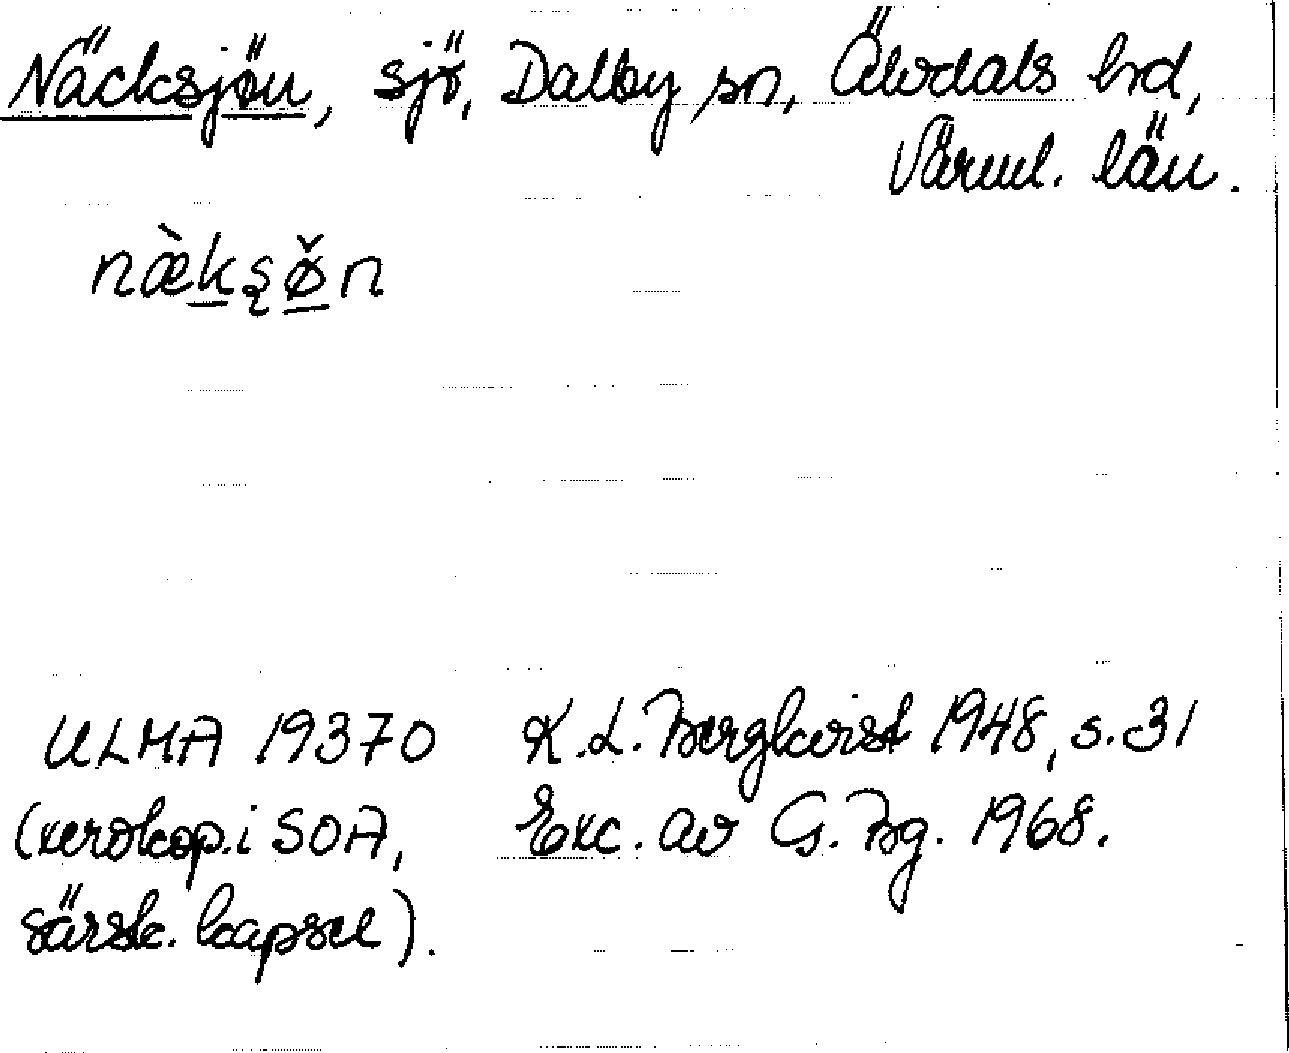 Näcksjön, sjö, Dalby sn, Älvdals hd,
Värml. län.
næ̀k̲ʂø̲̌n
ULMA 19370 K.L. Bergkvist 1948, s. 31
(xerokop. i SOA, Exc. av G. Bg. 1968.
särsk. kapsel).